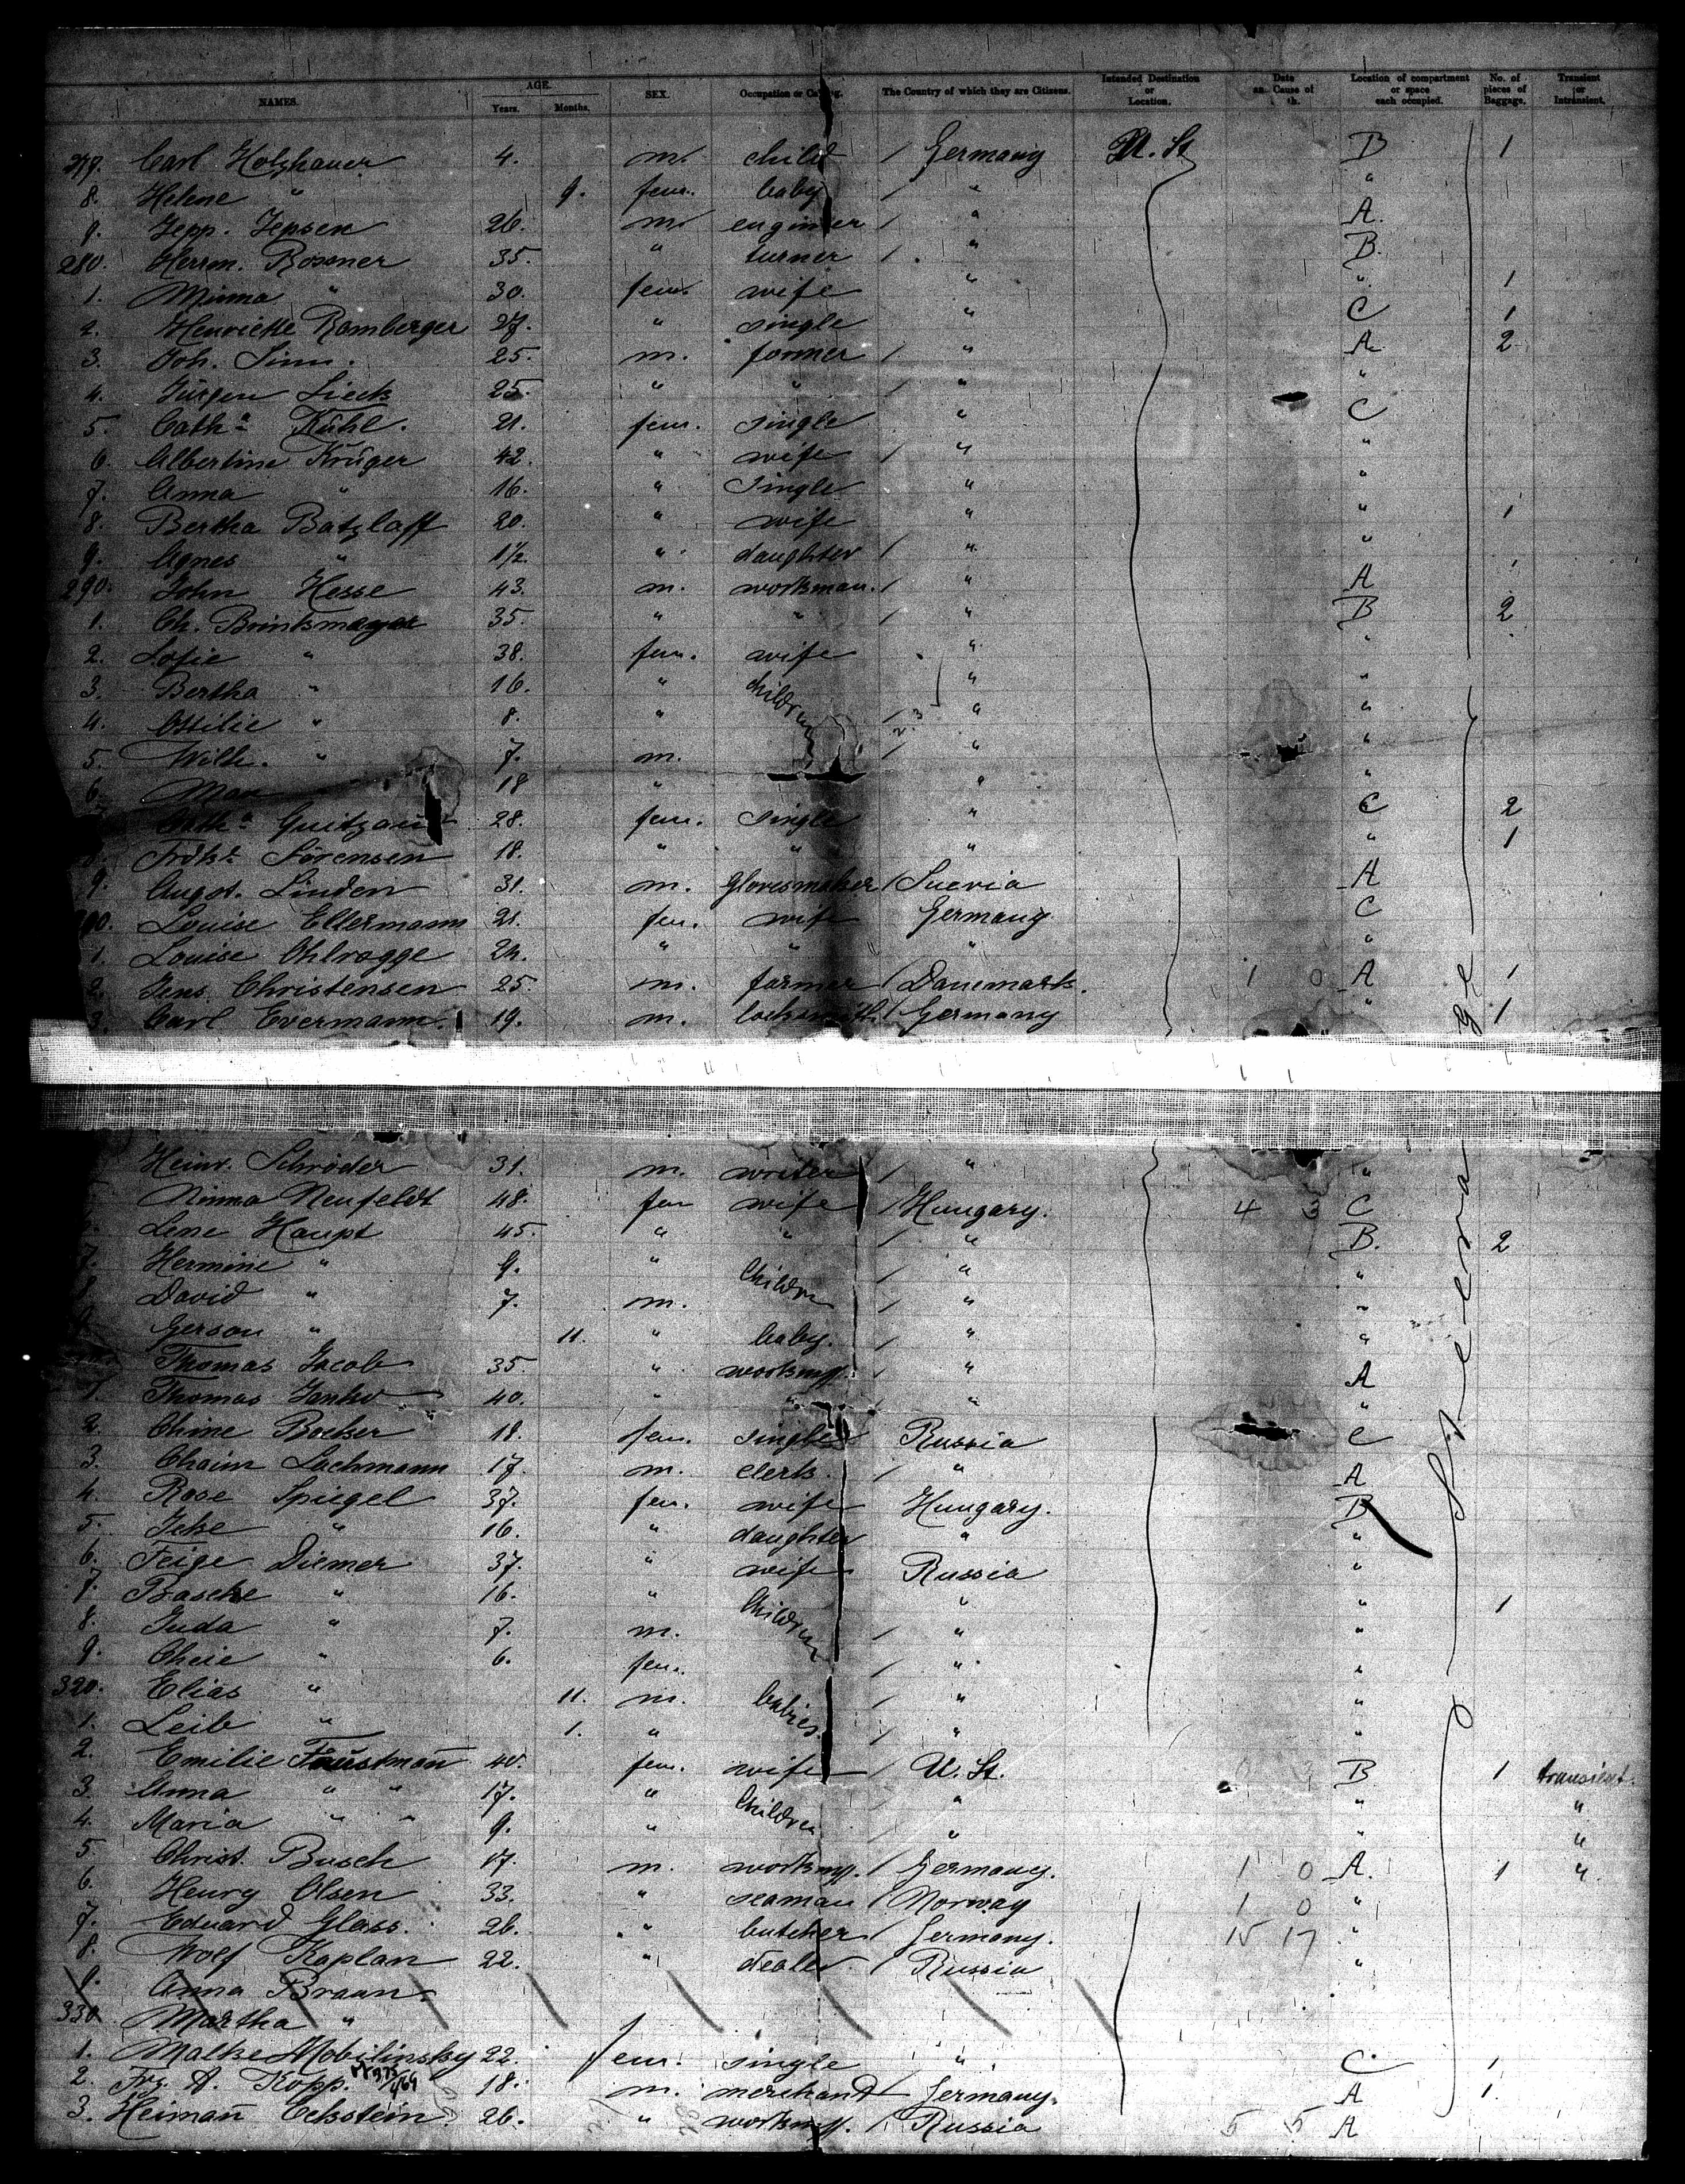 NAMES. AGE. Years. Months. SEX. Occupation or The Country of which they are Citizens. Intended Destination or Location. Date Cause of Location of compartment or space each occupied. No. of pieces of Baggage. Transient or Intransient.
279. Carl Holzhauer 4. m. child / Germany U. St B 1
8. Helene " 9. fem. baby / " "
9. Jepp. Jepsen 26. m. enginier / " A.
280. Herrm. Rossner 35. " turner / " B.
1. Minna " 30. fem. wife " " 1
2. Henriette Romberger 27. " single " C 1
3. Joh. Sinn. 25. m. farmer / " A 2
4. Jürgen Lieck 25. " " / " "
5. Catha Kühl. 21. fem. single " C
6. Albertine Krüger 42. " wife / " "
7. Anna " 16. " Single " "
8. Bertha Batzlaff 20. " wife " " 1
9. Agnes " 1½. " daughter / " "
290. John Hesse 43. m. workman. / " A
1. Ch. Brinkmeyer 35. " " / " B 2
2. Sofie " 38. fem. wife / " "
3. Bertha " 16. " children " "
4. Ottilie " 8. " / " "
5. Wilh. " 7. m. / " "
6. Max 18 " " "
Cath.a 28. fem. Single " C 2
Sörensen 18. " " " " 1
9. August. Linden 31. m. Glovesmaker / Suevia A
Louise Ellermann 21. fem. wife Germany C
1. Louise Ohlrogge 24. " " " "
2. Jens Christensen 25. m. farmer / Danemark. 1 0 A 1
3. Carl Evermann. 19. m. locksmith / Germany " 1
Heinr. Schröder 31. m. writer / " "
Minna Neufeldt 48. fem wife / Hungary. 4 C
Lene Haupt 45. " " / " B. 2
7. Hermine " 9. " Children / " "
8 David " 7. m. / " "
Gerson " 11. " baby. / " "
Thomas Jacob 35. " / " A
1. Thomas Janko 40. " " " "
2. Chine Boeker 18. fem. single Russia C
3. Chaim Lachmann 17. m. clerk. / " A
4. Rose Spiegel 37. fem. wife Hungary. B
5. " 16. " daughter " "
6. Feige Diemer 37. " wife Russia "
7. Basche " 16. " Children " " 1
8. Juda " 7. m. / " "
9. Cheie " 6. fem. / " "
320. Elias " 11. m. babies. / " "
1. Leib " 1. " / " "
2. Emilie Faustmañ 40. fem. wife / U. St. B 1 transient.
3. Anna " " 17. " Children / " " "
4. Maria " " 9. " / " " "
5. Christ. Busch 17. m. / Germany. 1 0 A. 1 "
6. Henry Olsen 33. " seaman / Norway 1 0 "
7. Eduard Glass. 26. " butcher / Germany. 15 17 "
8. Wolf Kaplan 22. " dealer. / Russia "
9. Anna Braun.
330. Martha "
1. Malke Mobilinsky 22. fem. single " C. 1
2. Frz. A. Kopp. 18. m. merchand Germany. A 1.
3. Heimañ Eckstein 26. " / Russia 5 5 A
Steerage